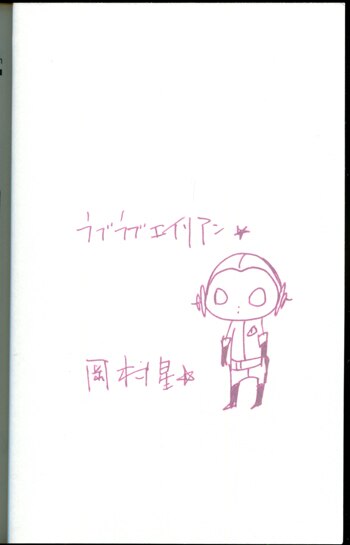 ラブラブエイリアン★
岡村星★